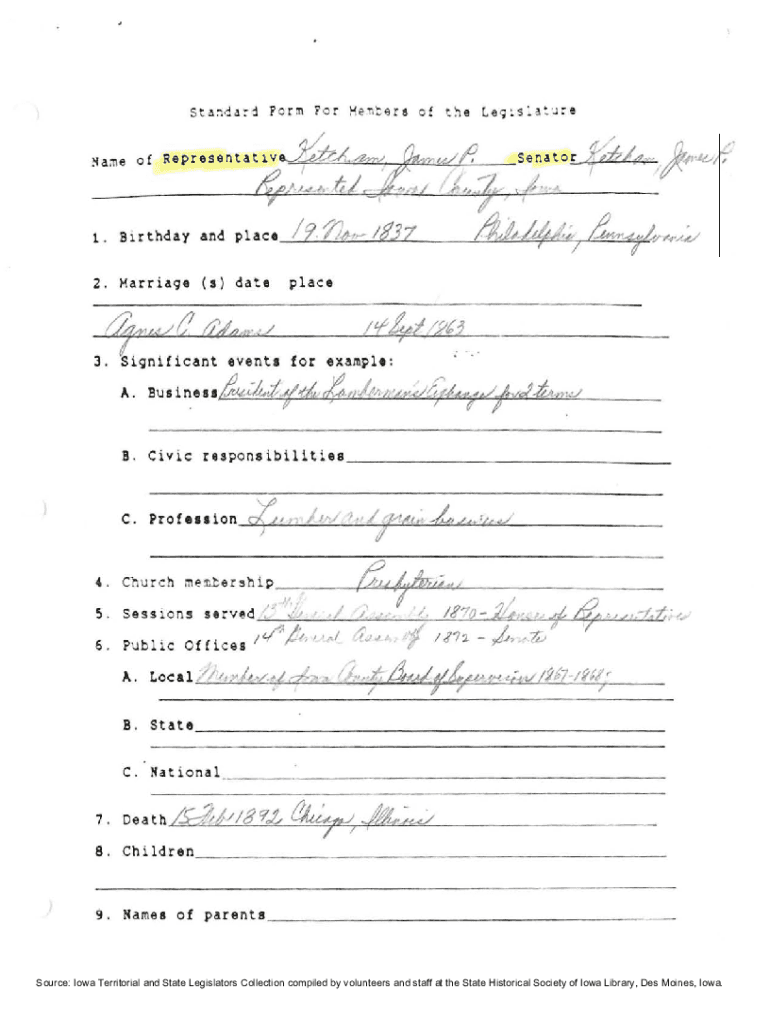 Standard Form For Members of the Legislature
Name of Representative Ketcham, James P. Senator Ketcham, James P.
Represented Iowa County, Iowa
1. Birthday and place 19 Nov 1837 Philadelphia, Pennsylvania
2. Marriage (s) date place
Agnes C. Adams 14 Sept 1863
3. Significant events for example:
A. Business President of the Lumberman's Exchange for 2 terms
B. Civic responsibilities
C. Profession Lumber and grain business
4. Church membership Presbyterian
5. Sessions served 13th General Assembly 1870 - House of Representatives
14th General Assembly 1872 - Senate
6. Public Offices
A. Local Member of Iowa County Board of Supervision 1867-1868;
B. State
C. National
7. Death 15 Feb 1892 Chicago, Illinois
8. Children
9. Names of parents
Source: Iowa Territorial and State Legislators Collection compiled by volunteers and staff at the State Historical Society of Iowa Library, Des Moines, Iowa.